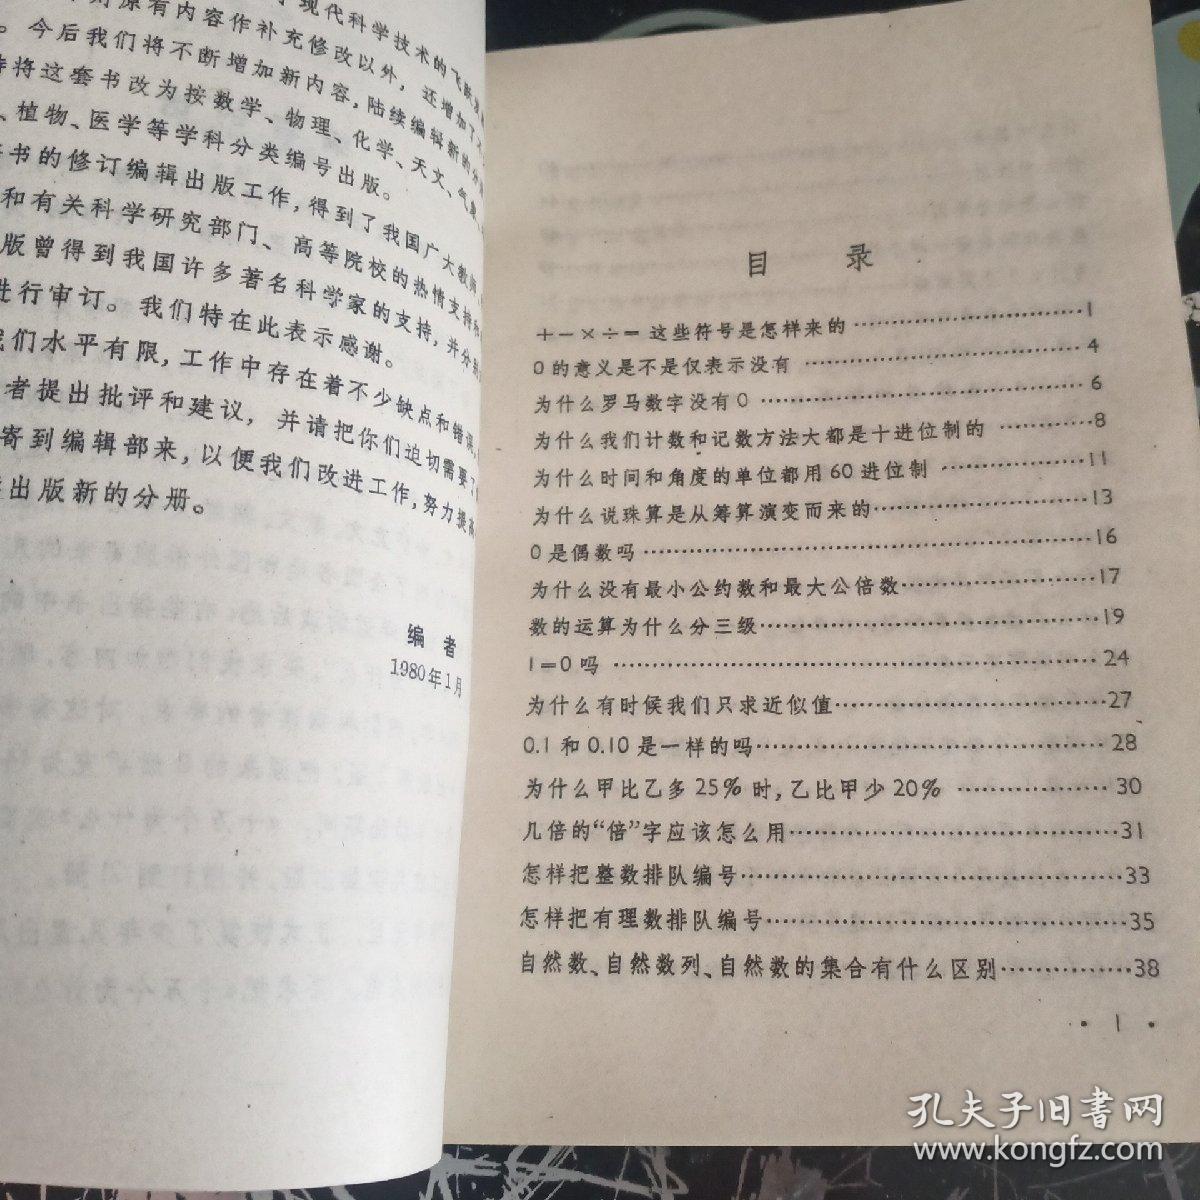 现代科学技术的飞跃
则原有内容作补充修改以外，还增加了
。今后我们将不断增加新内容，陆续编辑新的分
将这套书改为按数学、物理、化学、天文、气象
、植物、医学等学科分类编号出版。
书的修订编辑出版工作，得到了我国广大教师、
和有关科学研究部门、高等院校的热情支持和
版曾得到我国许多著名科学家的支持，并分别
进行审订。我们特在此表示感谢。
我们水平有限，工作中存在着不少缺点和错误，
者提出批评和建议，并请把你们迫切需要了
寄到编辑部来，以便我们改进工作，努力提高
出版新的分册。
编 者
1980年1月
目 录
＋－×÷＝ 这些符号是怎样来的…………1
0的意义是不是仅表示没有…………4
为什么罗马数字没有0…………6
为什么我们计数和记数方法大都是十进位制的…………8
为什么时间和角度的单位都用60进位制…………11
为什么说珠算是从筹算演变而来的…………13
0是偶数吗…………16
为什么没有最小公约数和最大公倍数…………17
数的运算为什么分三级…………19
1=0吗…………24
为什么有时候我们只求近似值…………27
0.1和0.10是一样的吗…………28
为什么甲比乙多25%时，乙比甲少20%…………30
几倍的“倍”字应该怎么用…………31
怎样把整数排队编号…………33
怎样把有理数排队编号…………35
自然数、自然数列、自然数的集合有什么区别…………38
· 1 ·
孔夫子旧书网
www.kongfz.com